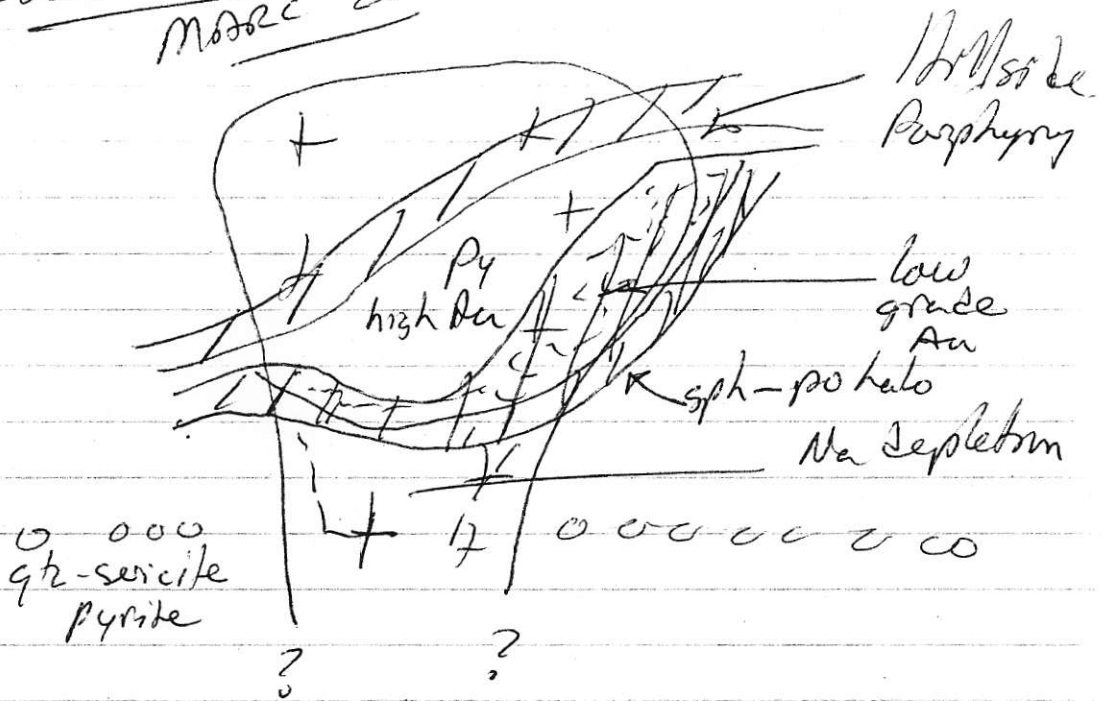 Hillside
Porphyry
Py
high Au
low
grade
Au
sph-po halo
Na depletion
qtz-sericite
pyrite
?
?